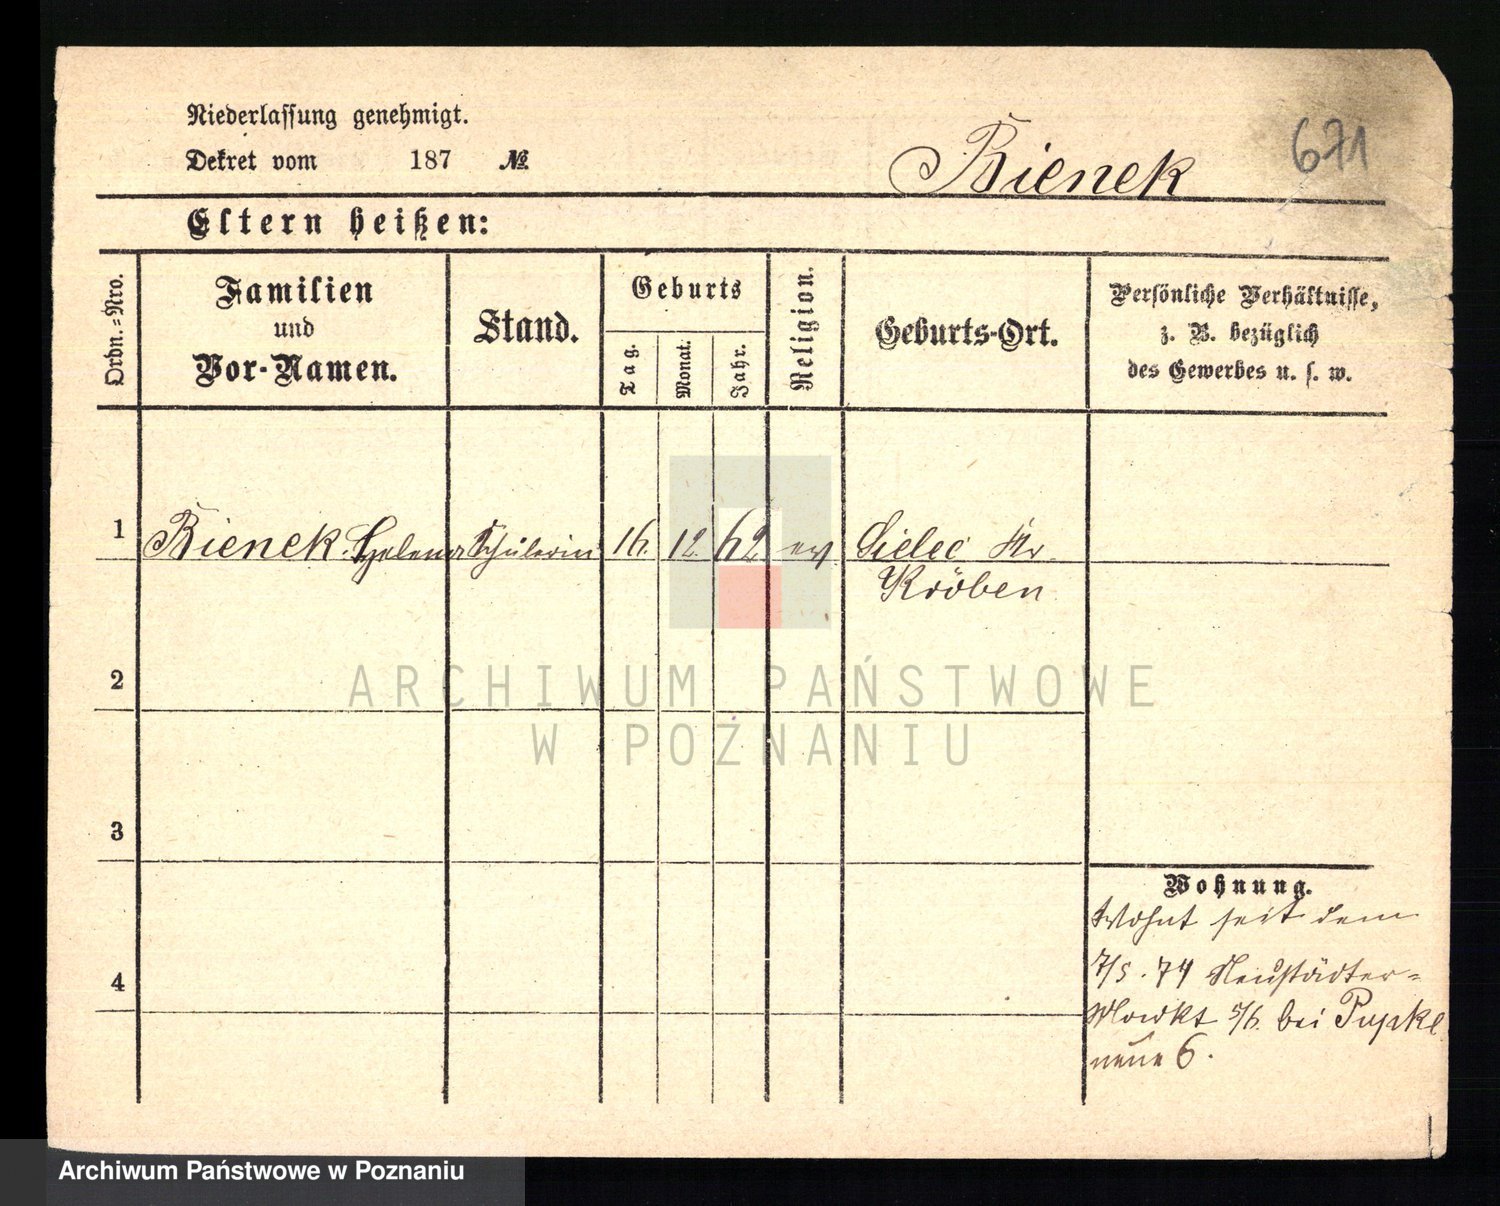 Niederlassung genehmigt.
Dekret vom 187 №
Bienek
671
Eltern heißen:
Ordn.=Nro.
Familien
und
Vor-Namen.
Stand.
Geburts
Tag.
Monat.
Jahr.
Religion.
Geburts-Ort.
Persönliche Verhältnisse,
z. B. bezüglich
des Gewerbes u. s. w.
1 Bienek. Helena Schülerin 16. 12. 62 ev Sielec Kr
Kröben
2
3
4
Wohnung.
Wohnt seit dem
7/5. 74 Neustädter=
Markt 5/6. bei Pupke
neue 6.
ARCHIWUM PAŃSTWOWE
W POZNANIU
Archiwum Państwowe w Poznaniu